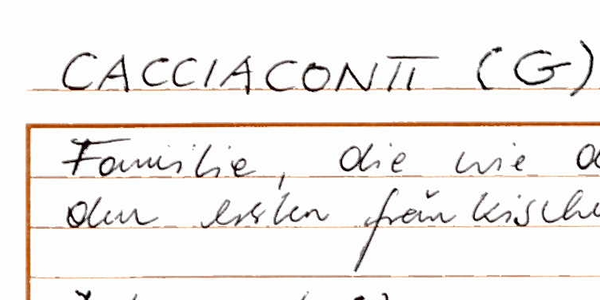 CACCIACONTI (G)
Familie, die wie
den ersten fränkische